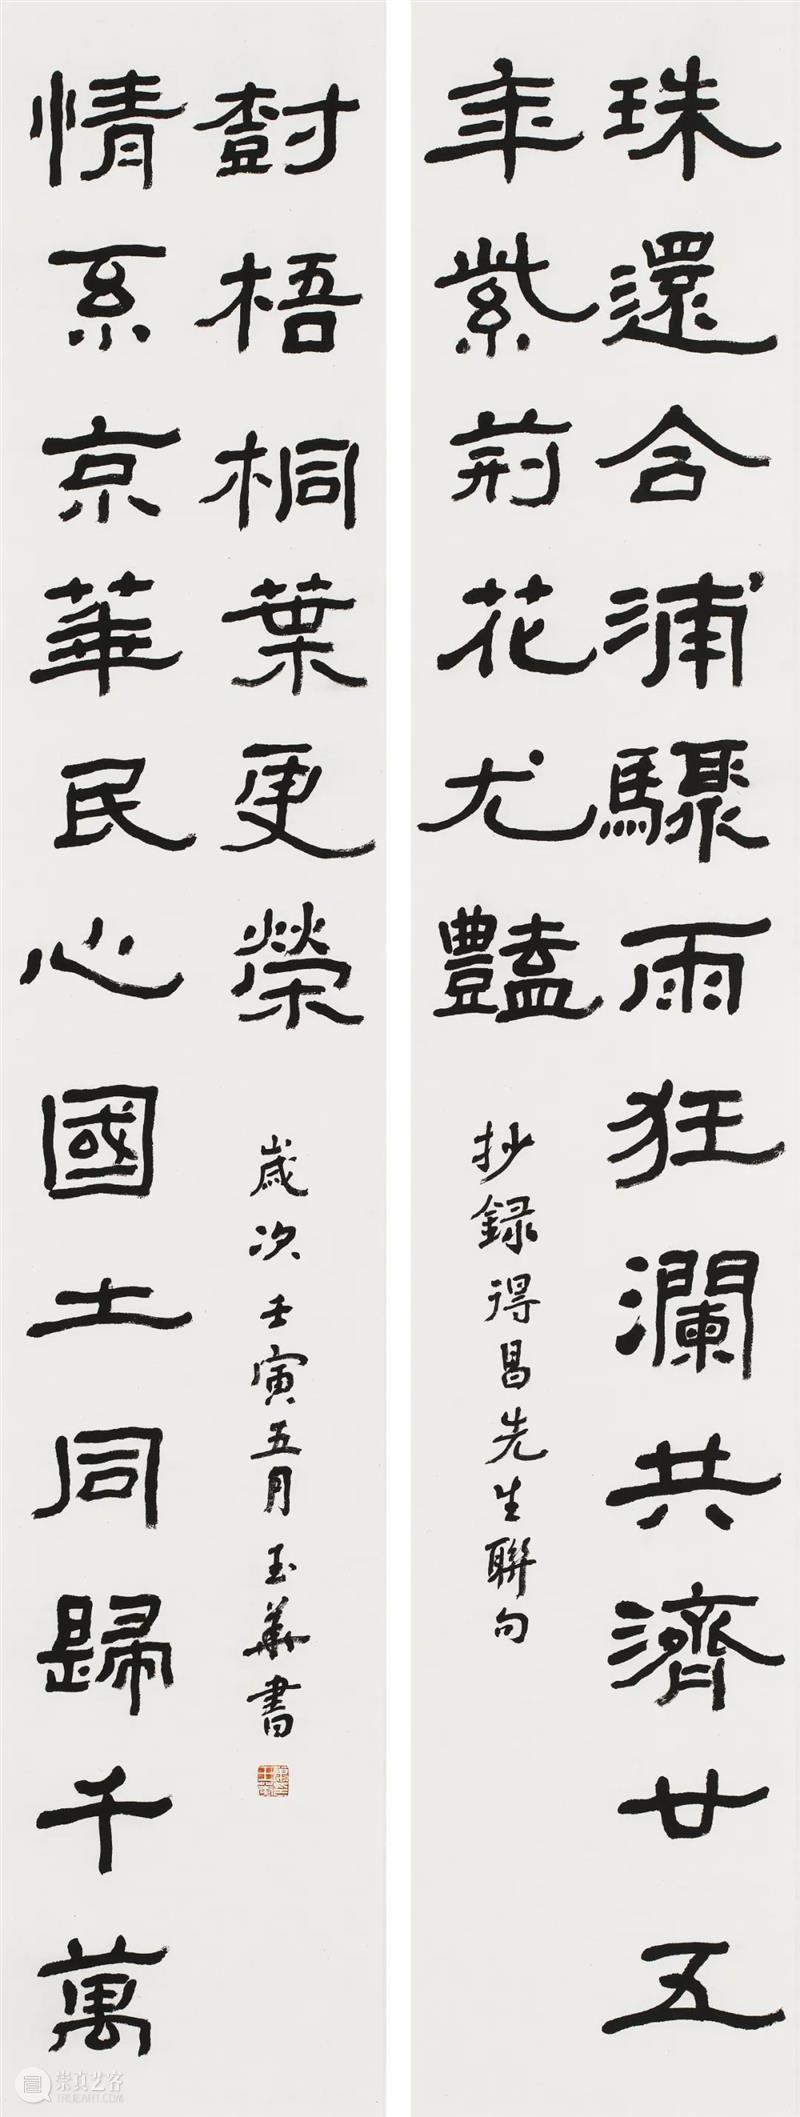 珠還合浦驟雨狂瀾共濟廿五
年紫荊花尤豔
抄録得昌先生聯句
情系京華民心國土同歸千萬
樹梧桐葉更榮
歲次壬寅五月玉華書
崇真艺客
TRUEART.COM